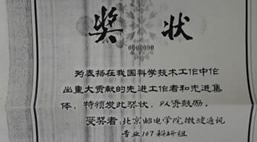 奖状
为表扬在我国科学技术工作中作
出重大贡献的先进工作者和先进集
体，特颁发此奖状，以资鼓励。
受奖者：北京邮电学院微波通讯
专业107科研组